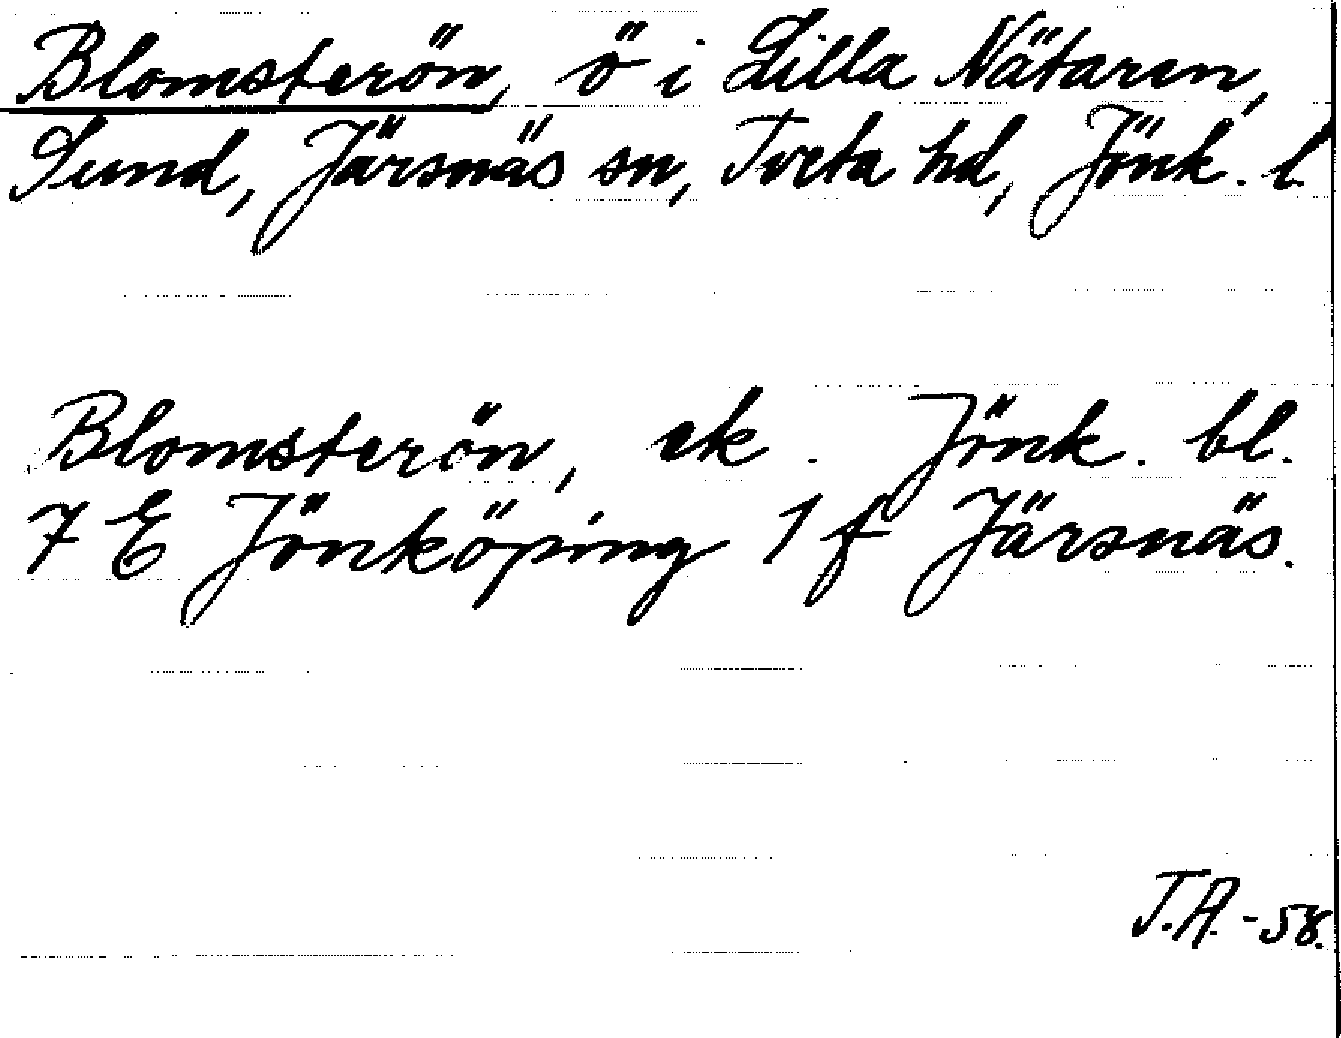 Blomsterön, ö i Lilla Nätaren,
Sund, Järsnäs sn, Tveta hd, Jönk. l.
Blomsterön, ek. Jönk. bl.
7 E Jönköping 1 f Järsnäs.
T.A. -58.